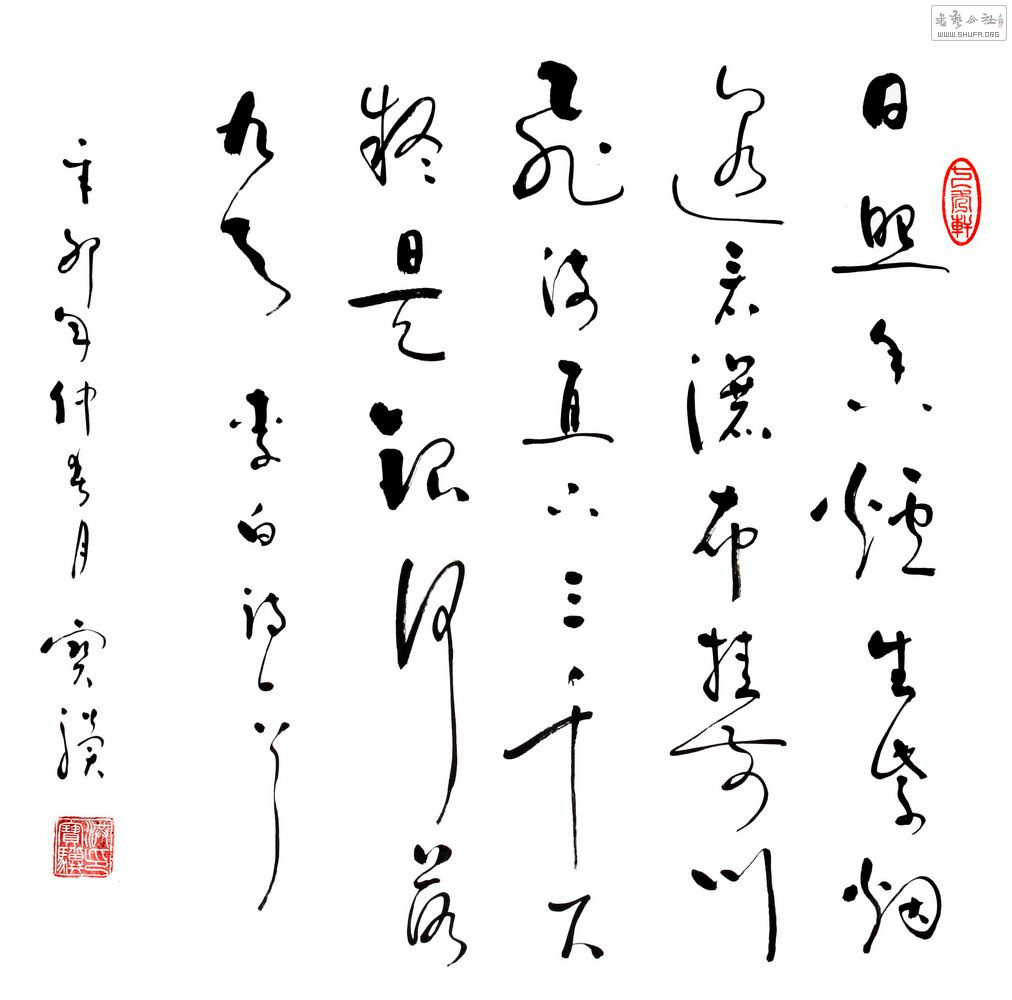 日照香爐生紫烟
遥看瀑布挂前川
飛流直下三千尺
疑是銀河落
九天 李白詩一首
辛卯年仲春月
書藝公社
WWW.SHUFA.ORG